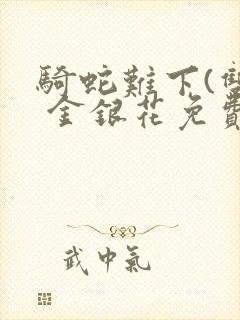 騎蛇難下(雙
金銀花免費
武中氣